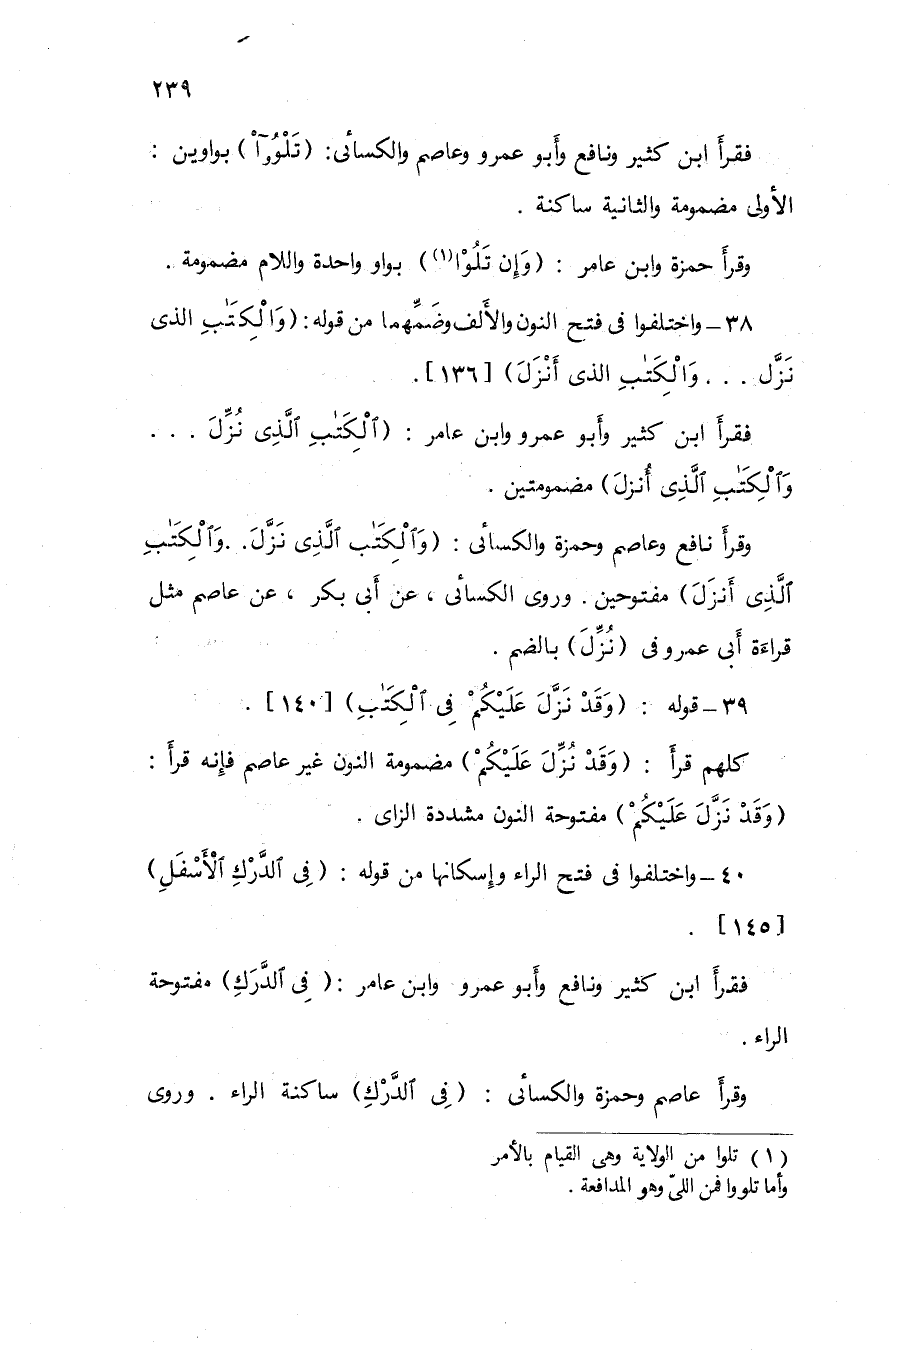 ٢٣٩
فقرأ ابن كثير ونافع وأبو عمرو وعاصم والكسائى: (تَلْوُۥٓاْ) بواوين :
الأولى مضمومة والثانية ساكنة .
وقرأ حمزة وابن عامر : (وَإِن تَلُوْاْ(١)) بواو واحدة واللام مضمومة .
٣٨ – واختلفوا فى فتح النون والألف وضَمِّهما من قوله: (وَاْلْكِتَٰبِ الذى
نَزَّل . . . وَاْلْكِتَٰبِ الذى أَنْزَلَ) [١٣٦].
فقرأ ابن كثير وأبو عمرو وابن عامر : (ٱلْكِتَٰبِ ٱلَّذِى نُزِّلَ . . .
وَٱلْكِتَٰبِ ٱلَّذِى أُنزلَ) مضمومتين .
وقرأ نافع وعاصم وحمزة والكسائى : (وَٱلْكِتَٰب ٱلَّذِى نَزَّلَ. .وَٱلْكِتَٰبِ
ٱلَّذِى أَنزَلَ) مفتوحين . وروى الكسائى ، عن أبى بكر ، عن عاصم مثل
قراءَة أبى عمرو فى (نُزِّلَ) بالضم .
٣٩ – قوله : (وَقَدْ نَزَّلَ عَلَيْكُمْ فِى ٱلْكِتَٰبِ) [١٤٠] .
كلهم قرأ : (وَقَدْ نُزِّلَ عَلَيْكُمْ) مضمومة النون غير عاصم فإنه قرأ :
(وَقَدْ نَزَّلَ عَلَيْكُمْ) مفتوحة النون مشددة الزاى .
٤٠ – واختلفوا فى فتح الراء وإسكانها من قوله : (فِى ٱلدَّرْكِ ٱلْأَسْفَلِ)
[١٤٥] .
فقرأ ابن كثير ونافع وأبو عمرو وابن عامر :( فِى ٱلدَّرَكِ) مفتوحة
الراء .
وقرأ عاصم وحمزة والكسائى : (فِى ٱلدَّرْكِ) ساكنة الراء . وروى
(١) تلوا من الولاية وهى القيام بالأمر
وأما تلووا فمن اللىّ وهو المدافعة .